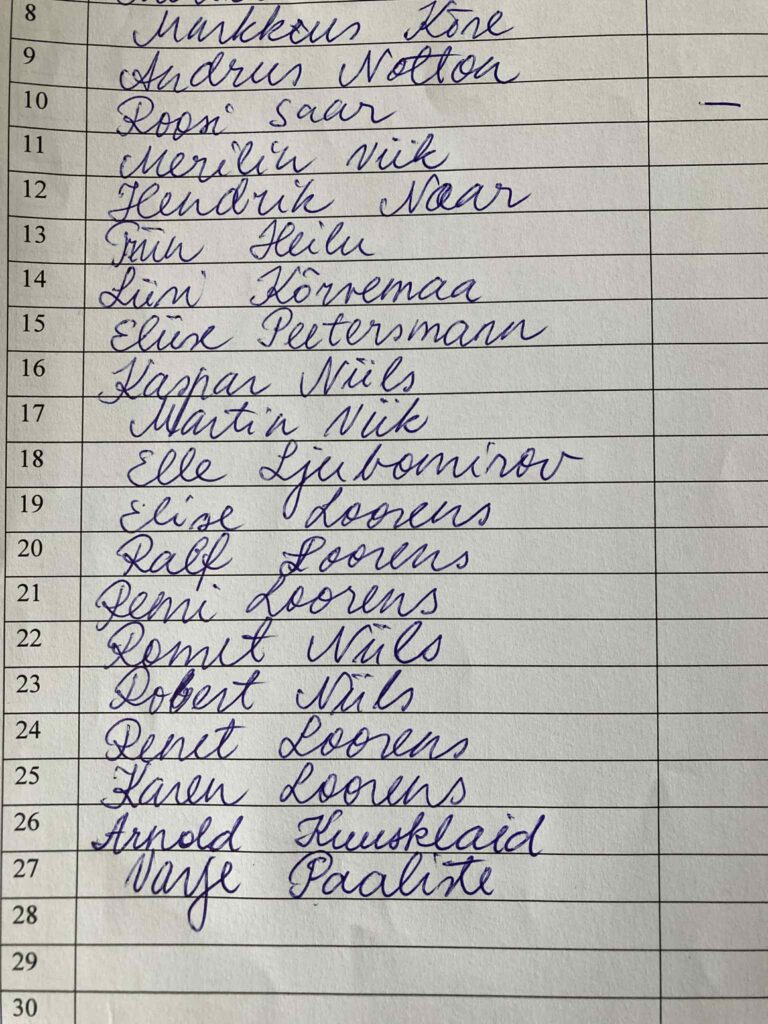 8 Markkus Kõre
9 Andrus Notton
10 Roosi Saar —
11 Merilin Viik
12 Hendrik Naar
13 Triin Heilu
14 Liisi Kõrvemaa
15 Eliise Peetersmann
16 Kaspar Niils
17 Martin Viik
18 Elle Ljubomirov
19 Elise Loorens
20 Ralf Loorens
21 Remi Loorens
22 Romet Niils
23 Robert Niils
24 Renet Loorens
25 Karen Loorens
26 Arnold Kuusklaid
27 Varje Paaliste
28
29
30